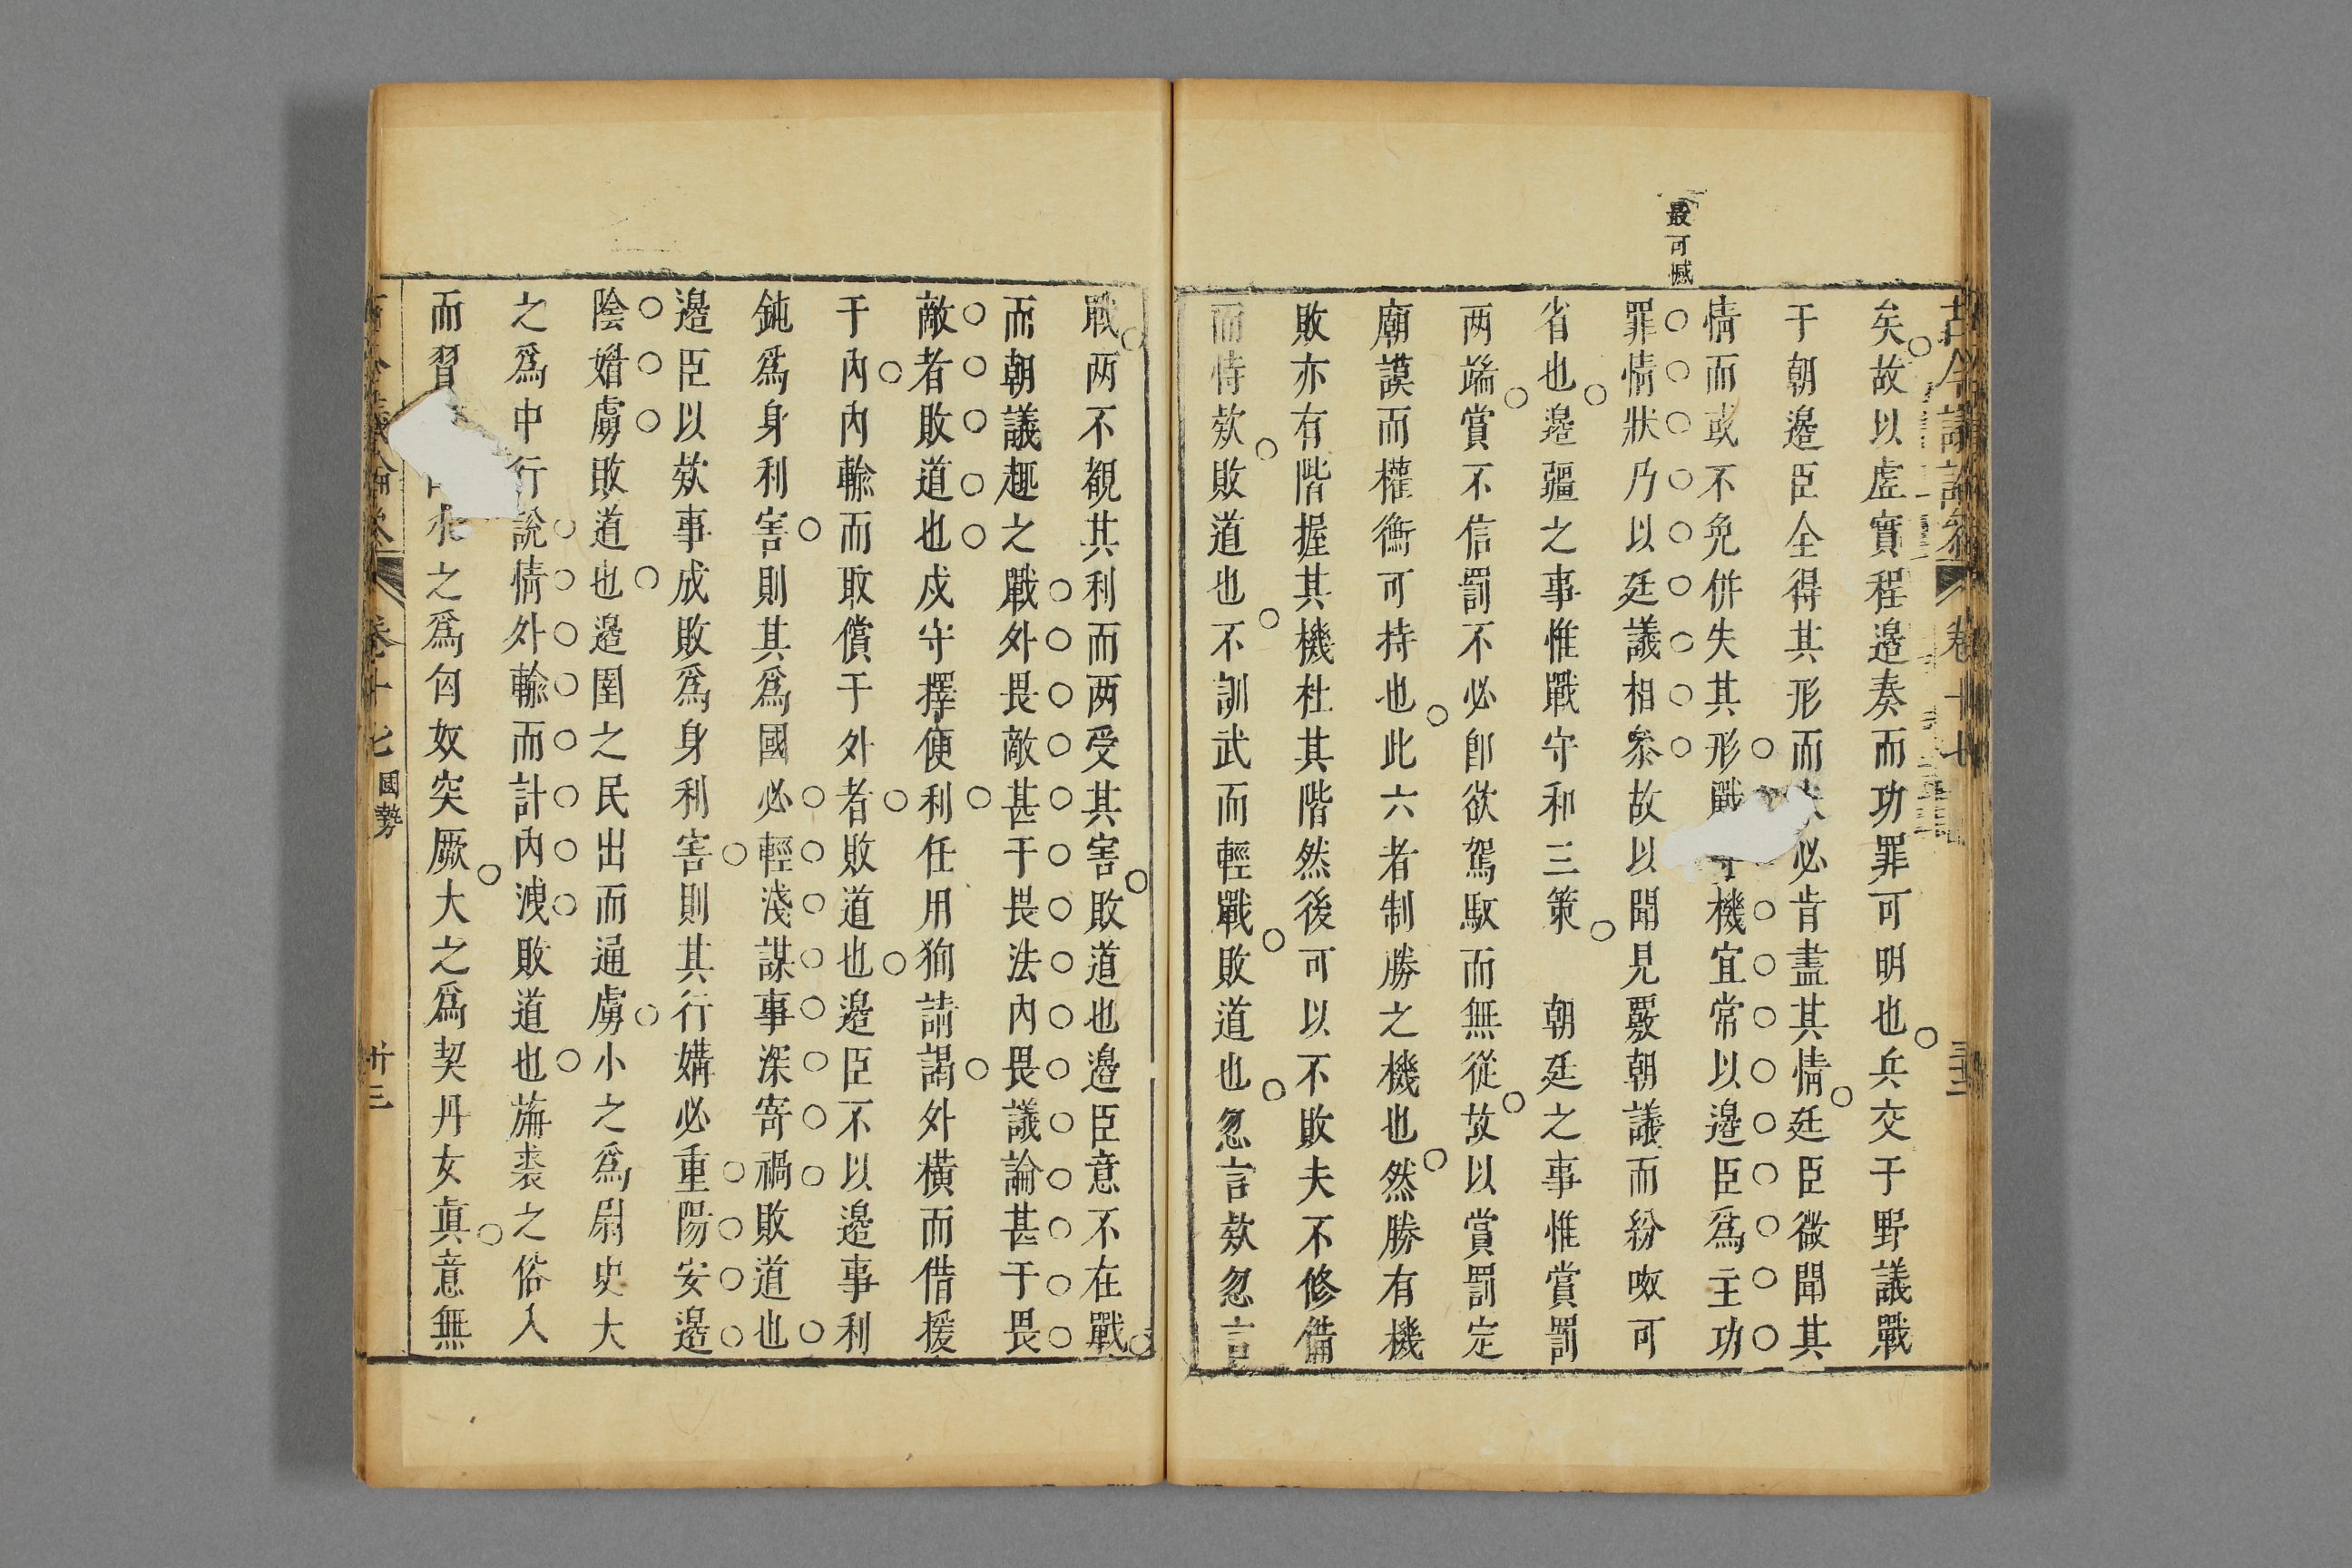 最可憾
古今議論參 卷十七
矣故以虛實程邉奏而功罪可明也兵交于野議戰
于朝邉臣全得其形而必肯盡其情廷臣微聞其
情而或不免併失其形戰機宜常以邉臣爲主功
罪情狀乃以廷議相叅故以聞見覈朝議而紛呶可
省也邉疆之事惟戰守和三策 朝廷之事惟賞罰
两端賞不信罰不必卽欲駕馭而無從故以賞罰定
廟謨而權衡可持也此六者制勝之機也然勝有機
敗亦有階握其機杜其階然後可以不敗夫不修備
而恃欵敗道也不訓武而輕戰敗道也忽言欵忽言
戰两不覩其利而两受其害敗道也邉臣意不在戰
而朝議趣之戰外畏敵甚于畏法內畏議論甚于畏
敵者敗道也戍守擇便利任用狥請謁外橫而借援
于內內輸而取償于外者敗道也邉臣不以邉事利
鈍爲身利害則其爲國必輕淺謀事深寄禍敗道也
邉臣以欵事成敗爲身利害則其行媾必重陽安邉
陰媚虜敗道也邉圉之民出而通虜小之爲尉史大
之爲中行說情外輸而計內洩敗道也旃裘之俗入
而習之爲匈奴突厥大之爲契丹女眞意無
古今議論參 卷十七 國勢 卅三